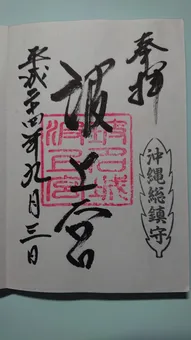 奉拝
沖縄総鎮守
波上宮
平成二十四年九月三日